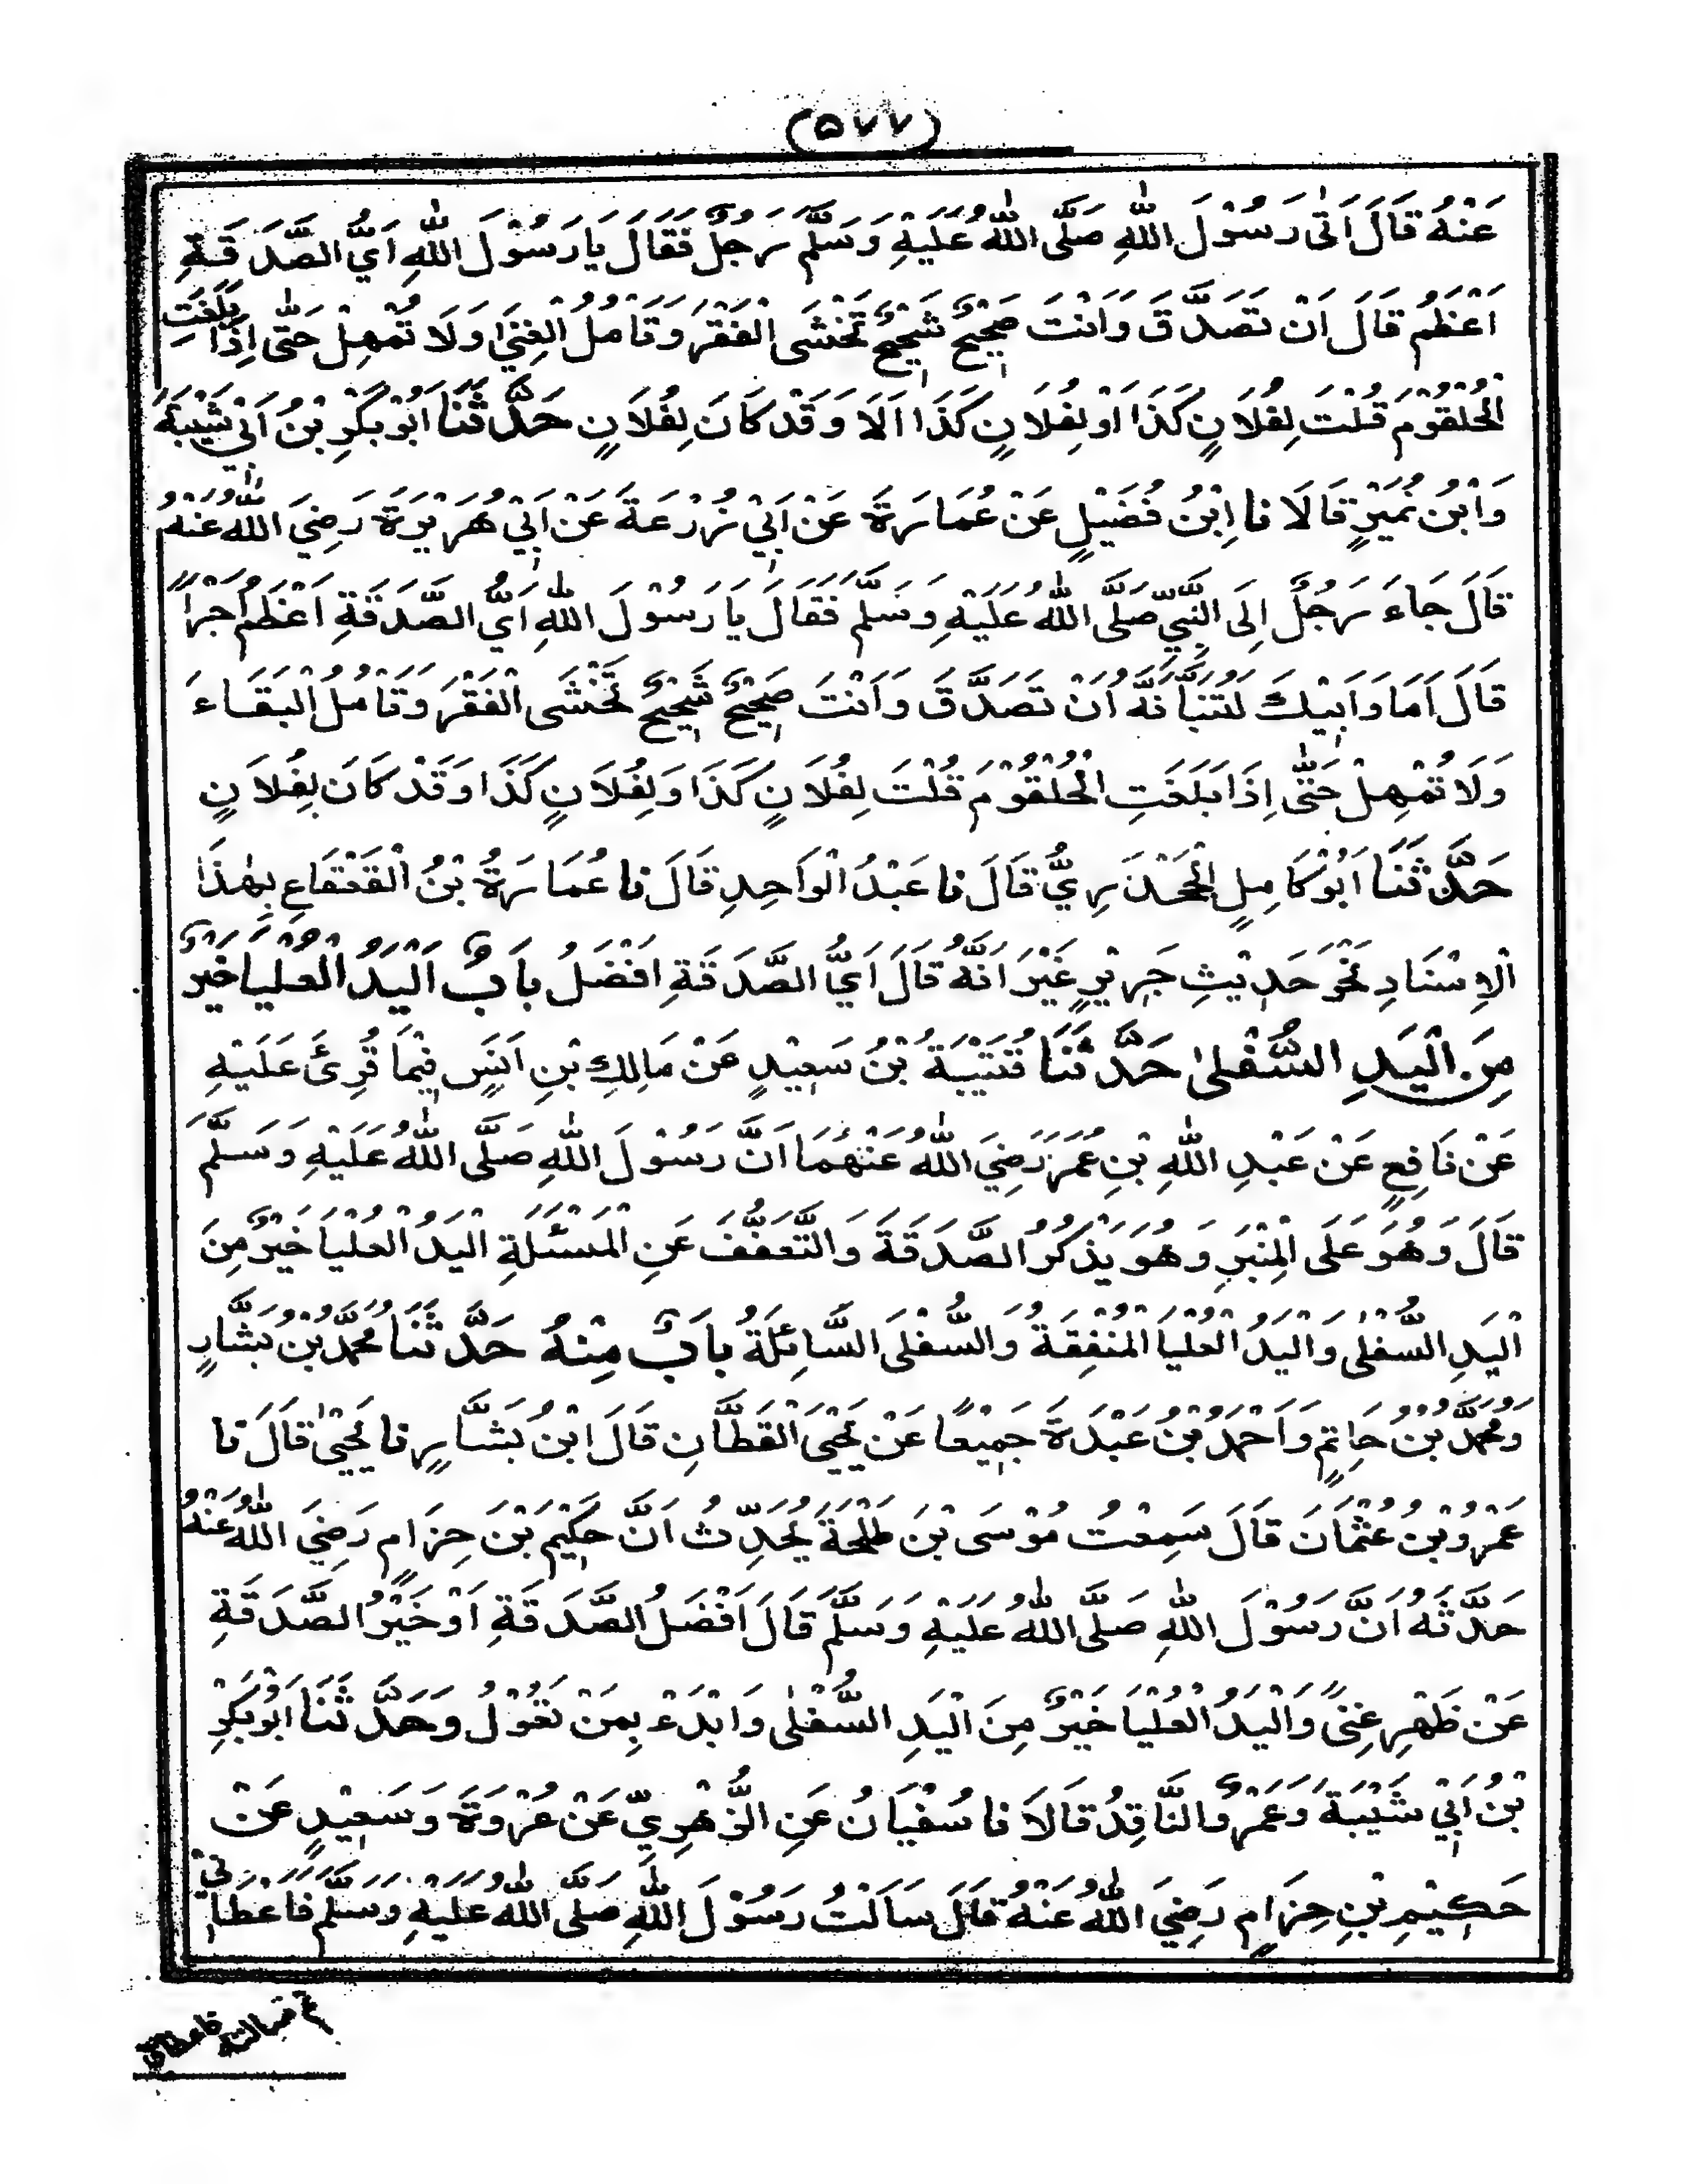 (٥٧٧)
عَنْهُ قَالَ اَتٰى رَسُوْلَ اللّٰهِ صَلَّى اللّٰهُ عَلَيْهِ وَسَلَّمَ رَجُلٌ فَقَالَ يَا رَسُوْلَ اللّٰهِ اَيُّ الصَّدَقَةِ
اَعْظَمُ قَالَ اَنْ تَصَدَّقَ وَاَنْتَ صَحِيْحٌ شَحِيْحٌ تَخْشَى الْفَقْرَ وَتَامُلُ الْغِنٰى وَلَا تُمْهِلْ حَتّٰى اِذَا بَلَغَتِ
الْحُلْقُوْمَ قُلْتَ لِفُلَانٍ كَذَا اَوْ لِفُلَانٍ كَذَا اَلَا وَقَدْ كَانَ لِفُلَانٍ حَدَّثَنَا اَبُوْبَكْرِ بْنُ اَبِيْ شَيْبَةَ
وَابْنُ نُمَيْرٍ قَالَا نا اِبْنُ فُضَيْلٍ عَنْ عُمَارَةَ عَنْ اَبِيْ زُرْعَةَ عَنْ اَبِيْ هُرَيْرَةَ رَضِيَ اللّٰهُ عَنْهُ
قَالَ جَاءَ رَجُلٌ اِلَى النَّبِيِّ صَلَّى اللّٰهُ عَلَيْهِ وَسَلَّمَ فَقَالَ يَا رَسُوْلَ اللّٰهِ اَيُّ الصَّدَقَةِ اَعْظَمُ اَجْرًا
قَالَ اَمَا وَاَبِيْكَ لَتُنَبَّاَنَّهُ اَنْ تَصَدَّقَ وَاَنْتَ صَحِيْحٌ شَحِيْحٌ تَخْشَى الْفَقْرَ وَتَامُلُ الْبَقَاءَ
وَلَا تُمْهِلْ حَتّٰى اِذَا بَلَغَتِ الْحُلْقُوْمَ قُلْتَ لِفُلَانٍ كَذَا وَلِفُلَانٍ كَذَا وَقَدْ كَانَ لِفُلَانٍ
حَدَّثَنَا اَبُوْ كَامِلٍ الْجَحْدَرِيُّ قَالَ نا عَبْدُ الْوَاحِدِ قَالَ نا عُمَارَةُ بْنُ الْقَعْقَاعِ بِهٰذَا
الْاِسْنَادِ نَحْوَ حَدِيْثِ جَرِيْرٍ غَيْرَ اَنَّهُ قَالَ اَيُّ الصَّدَقَةِ اَفْضَلُ بَابٌ اَلْيَدُ الْعُلْيَا خَيْرٌ
مِنَ الْيَدِ السُّفْلٰى حَدَّثَنَا قُتَيْبَةُ بْنُ سَعِيْدٍ عَنْ مَالِكِ بْنِ اَنَسٍ فِيْمَا قُرِئَ عَلَيْهِ
عَنْ نَافِعٍ عَنْ عَبْدِ اللّٰهِ بْنِ عُمَرَ رَضِيَ اللّٰهُ عَنْهُمَا اَنَّ رَسُوْلَ اللّٰهِ صَلَّى اللّٰهُ عَلَيْهِ وَسَلَّمَ
قَالَ وَهُوَ عَلَى الْمِنْبَرِ وَهُوَ يَذْكُرُ الصَّدَقَةَ وَالتَّعَفُّفَ عَنِ الْمَسْئَلَةِ الْيَدُ الْعُلْيَا خَيْرٌ مِنَ
الْيَدِ السُّفْلٰى وَالْيَدُ الْعُلْيَا الْمُنْفِقَةُ وَالسُّفْلَى السَّائِلَةُ بَابٌ مِنْهُ حَدَّثَنَا مُحَمَّدُ بْنُ بَشَّارٍ
وَمُحَمَّدُ بْنُ حَاتِمٍ وَاَحْمَدُ بْنُ عَبْدَةَ جَمِيْعًا عَنْ يَحْيَى الْقَطَّانِ قَالَ ابْنُ بَشَّارٍ نا يَحْيٰى قَالَ نا
عَمْرُو بْنُ عُثْمَانَ قَالَ سَمِعْتُ مُوْسَى بْنَ طَلْحَةَ يُحَدِّثُ اَنَّ حَكِيْمَ بْنَ حِزَامٍ رَضِيَ اللّٰهُ عَنْهُ
حَدَّثَهُ اَنَّ رَسُوْلَ اللّٰهِ صَلَّى اللّٰهُ عَلَيْهِ وَسَلَّمَ قَالَ اَفْضَلُ الصَّدَقَةِ اَوْ خَيْرُ الصَّدَقَةِ
عَنْ ظَهْرِ غِنًى وَالْيَدُ الْعُلْيَا خَيْرٌ مِنَ الْيَدِ السُّفْلٰى وَابْدَءْ بِمَنْ تَعُوْلُ وَحَدَّثَنَا اَبُوْبَكْرِ
بْنُ اَبِيْ شَيْبَةَ وَعَمْرٌو النَّاقِدُ قَالَا نا سُفْيَانُ عَنِ الزُّهْرِيِّ عَنْ عُرْوَةَ وَسَعِيْدٍ عَنْ
حَكِيْمِ بْنِ حِزَامٍ رَضِيَ اللّٰهُ عَنْهُ قَالَ سَاَلْتُ رَسُوْلَ اللّٰهِ صَلَّى اللّٰهُ عَلَيْهِ وَسَلَّمَ فَاَعْطَانِيْ
فاعطانى